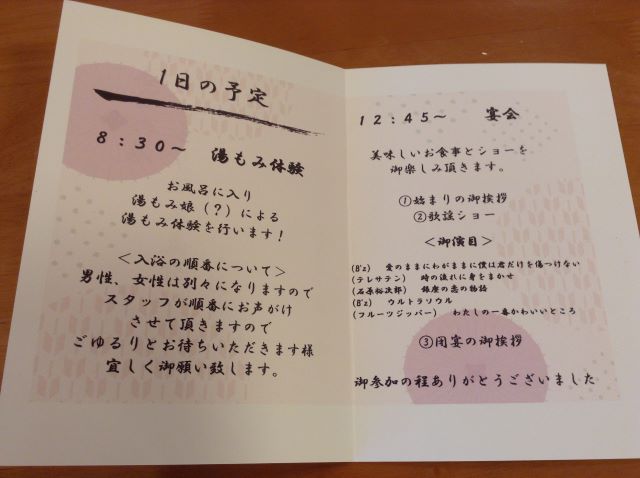 1日の予定
8:30～ 湯もみ体験
お風呂に入り
湯もみ娘(?)による
湯もみ体験を行います!
<入浴の順番について>
男性、女性は別々になりますので
スタッフが順番にお声がけ
させて頂きますので
ごゆるりとお待ちいただきます様
宜しく御願い致します。
12:45～ 宴会
美味しいお食事とショーを
御楽しみ頂きます。
①始まりの御挨拶
②歌謡ショー
<御演目>
(B'z) 愛のままにわがままに僕は君だけを傷つけない
(テレサテン) 時の流れに身をまかせ
(石原裕次郎) 銀座の恋の物語
(B'z) ウルトラソウル
(フルーツジッパー) わたしの一番かわいいところ
③閉宴の御挨拶
御参加の程ありがとうございました